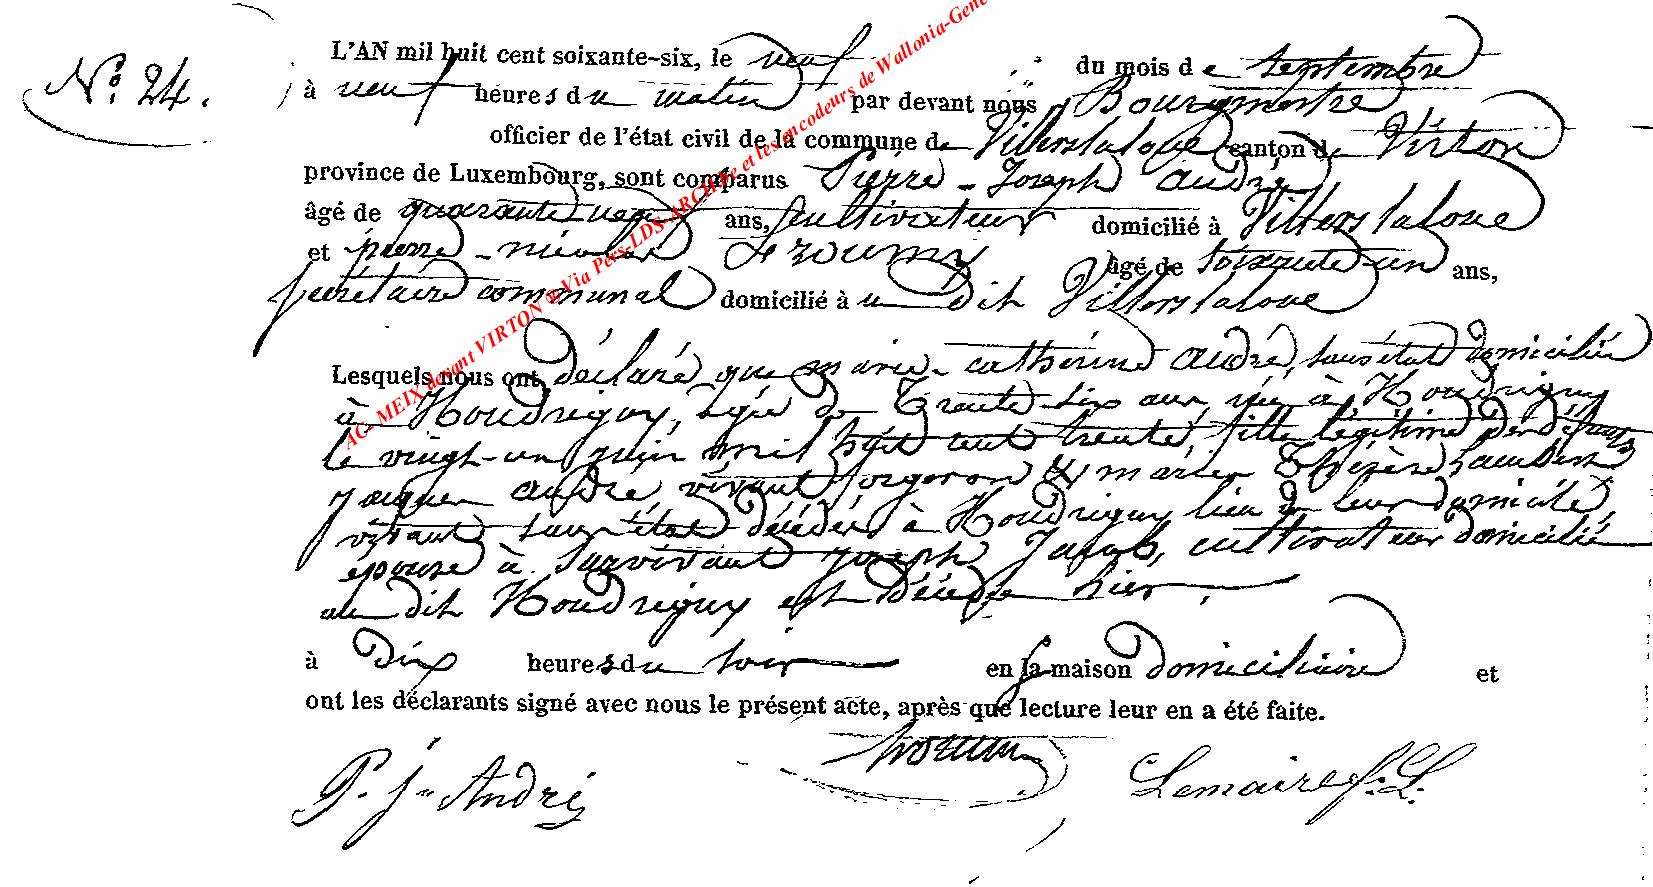 N.° 24.
L'AN mil huit cent soixante-six, le neuf du mois de septembre
à neuf heures du matin par devant nous Bourgmestre
officier de l'état civil de la commune de Villerslaloue canton de Virton
province de Luxembourg, sont comparus Pierre-Joseph André
âgé de quarante neuf ans, cultivateur domicilié à Villerslaloue
et pierre-nicolas âgé de soixante un ans,
secrétaire communal domicilié à u dit Villerslaloue
Lesquels nous ont déclaré que marie-catherine André, sans état domicilié
à Houdrigny, agée de Trente-six ans, née à Houdrigny
le vingt-un juin mil huit cent trente, fille légitime des défunts
Jacques André vivant forgeron & marie Thérèse Lambert
vivant sans état décédés à Houdrigny lieu de leur domicile,
épouse à survivant Joseph Jacob, cultivateur domicilié
au dit Houdrigny est décédée hier,
à dix heures du soir en sa maison domiciliaire et
ont les déclarants signé avec nous le présent acte, après que lecture leur en a été faite.
P. J. André
Lemaire f. L.
AC- MEIX devant VIRTON Via Pers-LDS-ARCHive et les encodeurs de Wallonia-Gene